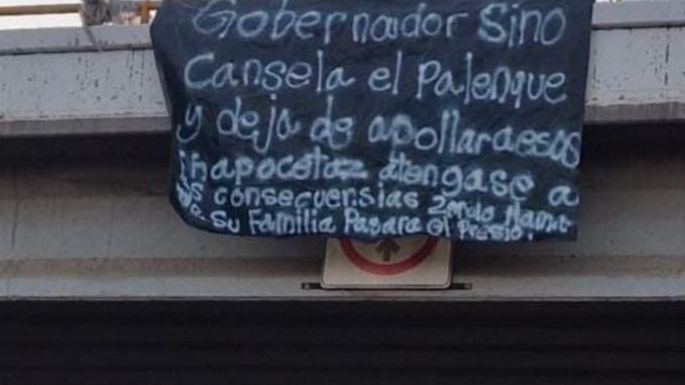 Gobernador Sino
Cansela el Palenque
y deja de apollaraesos
chapocetaz atengase a
las consecuensias
Su Familia Pagara el Presio!